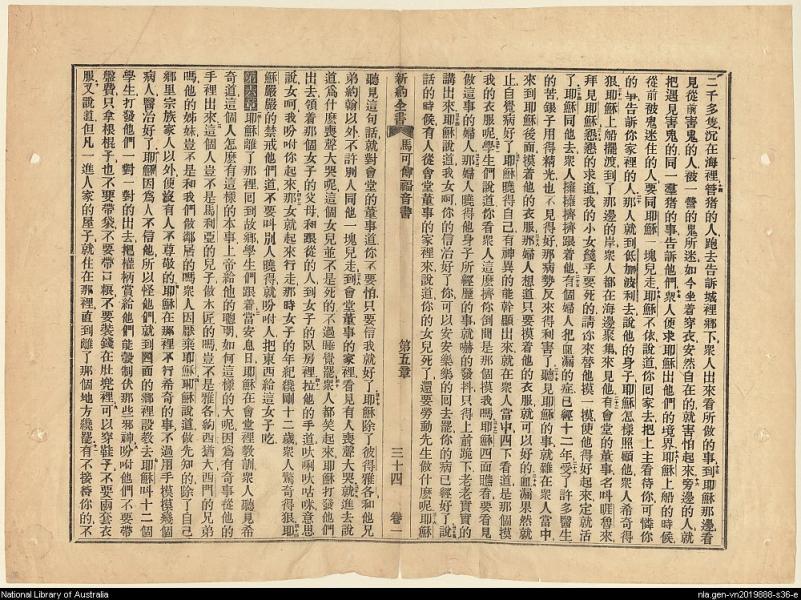 二千多隻沉在海裡管猪的人跑去告訴城裡鄉下衆人出來看所做的事到耶穌那邊看
見從前害鬼迷的人被一營的鬼所迷如今坐着穿衣安然自在的就害怕起來旁邊的人就
把遇見害鬼的同一羣猪的事告訴他們衆人便求耶穌出他們的境界耶穌上船的時候
從前被鬼迷住的人要同耶穌一塊兒走耶穌不依說道你回家去把上主看待你可憐你
的事告訴你家裡的人那人就到低加波利去說他的身子耶穌怎樣照顧他衆人希奇得
狠耶穌上船擺渡到了那邊的岸衆人都在海邊聚集來見他有會堂的董事名叫睚魯來
拜見耶穌懇懇的求道我的小女幾乎要死的請你來替他摸一摸使他得好起來定就活
了耶穌同他去衆人擁擁擠擠跟着他有個婦人犯血漏的症已經十二年受了許多醫生
的苦銀子用得精光也不見得好那病勢反來得利害了聽見耶穌的事就雜在衆人當中
來到耶穌後面摸着他的衣服那婦人想道只要摸着他的衣服就可以好的血漏果然就
止自覺病好了耶穌曉得自己有神異的能幹顯出來就在衆人當中四下看道是那個摸
我的衣服呢學生們說道你看衆人這麼擠你倒問是那個摸我嗎耶穌四面瞻看要看見
做這事的婦人那婦人曉得他身子所經歷的事就嚇的發抖只得上前跪下老老實實的
講出來耶穌說道我女呵你的信治好了你可以安安樂樂的回去罷你的病已經好了說
話的時候有人從會堂董事的家裡來說道你的女兒死了還要勞動先生做什麼呢耶穌
新約全書 馬可傳福音書 第五章 三十四 卷二
聽見這句話就對會堂的董事道你不要怕只要信我就好了耶穌除了彼得雅各和他兄
弟約翰以外不許別人同他一塊兒走到會堂董事的家裡看見有人喪聲大哭就進去說
道爲什麼喪聲大哭呢這個女兒並不是死的不過睡覺罷衆人都笑起來耶穌打發他們
出去領着那個女子的父母和跟從的人到女子的臥房裡拉他的手道呔唎呔咕咪意思
說女呵我吩咐你起來那女就起來行走那時女子的年紀纔剛十二歲衆人驚奇得狠耶
穌嚴嚴的禁戒他們道不要叫別人曉得就吩咐人把東西給這女子吃
第六章耶穌離了那裡回到故鄉學生們跟着當安息日耶穌在會堂裡教訓衆人聽見希
奇道這個人怎麼有這樣的本事上帝給他的聰明如何這樣的大呢因爲有奇事從他的
手裡出來這個人豈不是馬利亞的兒子做木匠的嗎豈不是雅各約西猶大西門的兄弟
嗎他的姊妹豈不是和我們做鄰居的嗎衆人因厭棄耶穌耶穌說道做先知的除了自己
鄉里宗族家人以外便沒有人不尊敬的耶穌在那裡不行希奇的事不過用手摸摸幾個
病人醫治好了耶穌因爲人不信他所以怪他們就到四面的鄉裡設教去耶穌叫十二個
學生打發他們一對一對的出去把權柄賞給他們能彀制伏那些邪神吩咐他們不要帶
盤費只拿根棍子也不要帶袋不要帶口糧不要裝錢在肚兜裡可以穿鞋子不要兩套衣
服又說道但凡一進人家的屋子就住在那裡直到離了那個地方纔罷有不接待你的不
National Library of Australia
nla.gen-vn2019888-s36-e